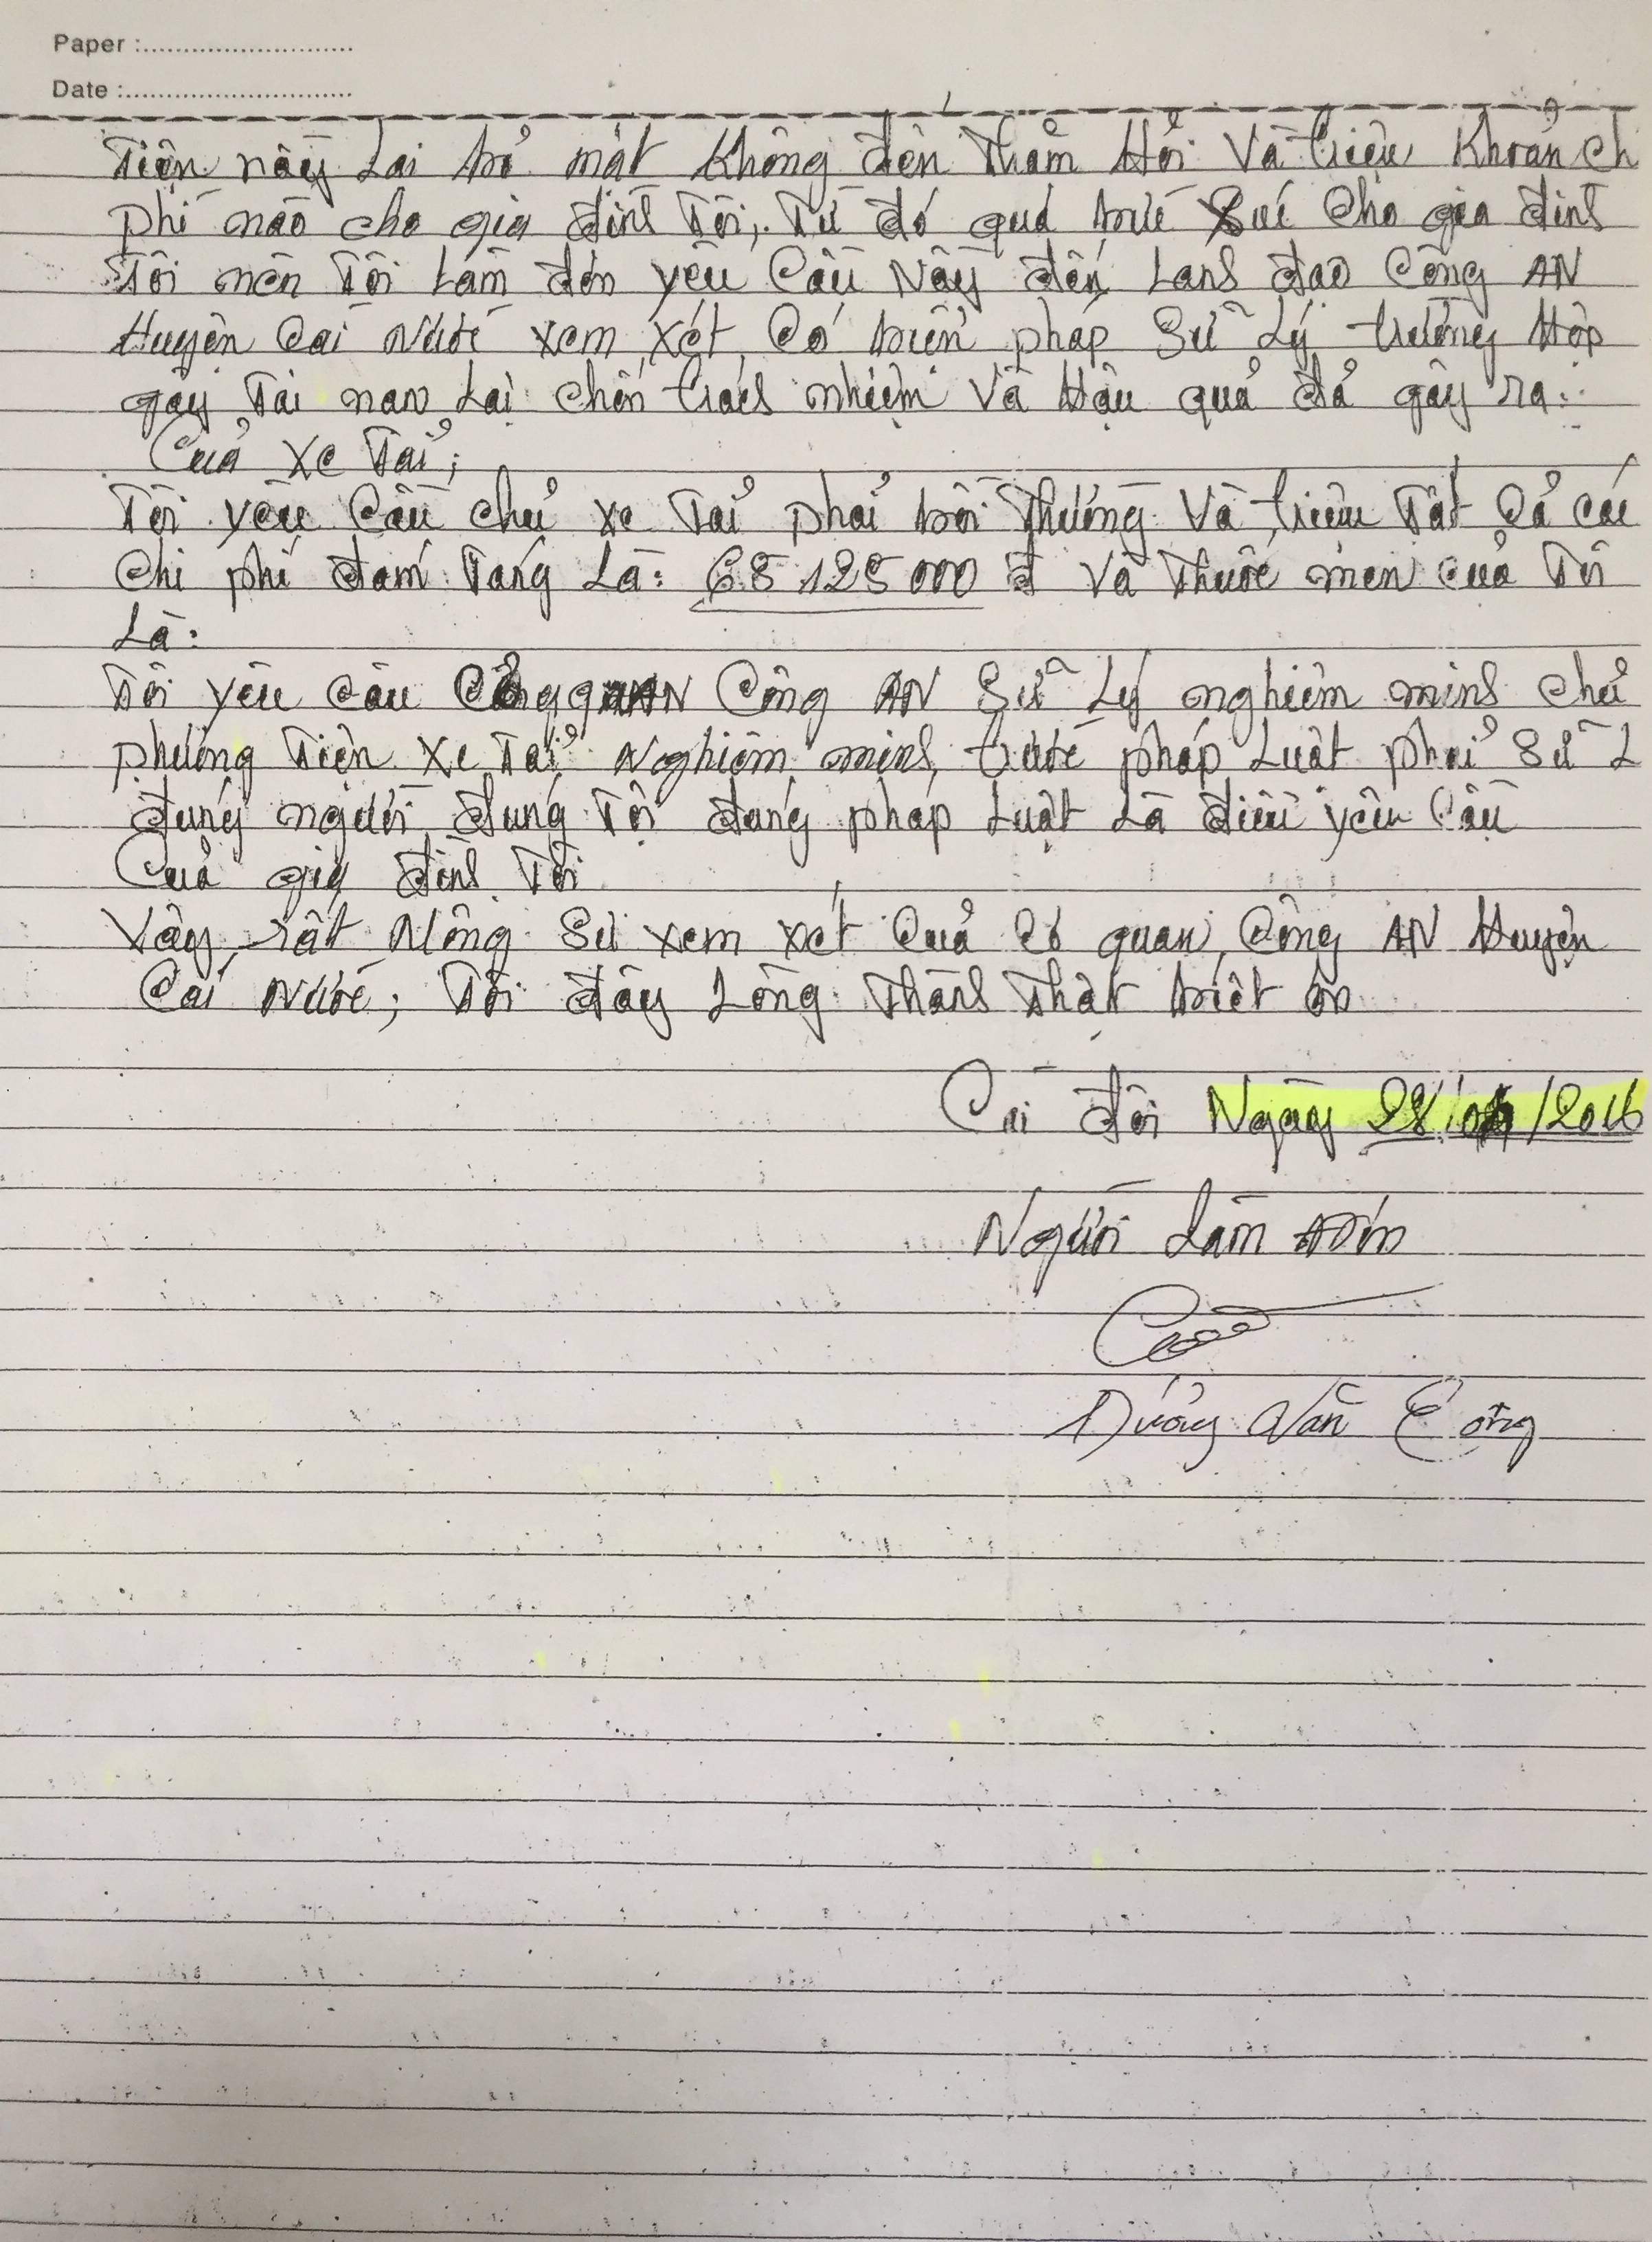 Paper :..........................
Date :............................
Tiện nầy Lại bỏ mặt Không đến Thăm Hỏi Và triệu Khoản ch
phí nào cho gia đình Tôi, Từ đó quá bức Xúc Cho gia đình
Tôi nên Tôi Làm đơn yêu Cầu Nầy đến Lanh đạo Công AN
Huyện Cái Nước xem xét Có biện pháp Sử Lý trường Hợp
gây Tai nan Lại chốn trách nhiệm Và Hậu quả đả gây ra.
Của Xe Tải;
Tôi yêu Cầu chủ xe Tải phải bồi Thường Và triệu Tất Cả các
Chi phí đám Táng Là: 68 125 000 đ Và Thuốc men của Tôi
Là:
Tôi yêu cầu Công AN Sữ Lý nghiêm minh chủ
phương Tiện Xe Tải Nghiêm minh trước pháp Luật phải Sữ L
đúng người đúng Tội đúng pháp Luật Là điều yêu Cầu
Của gia đình Tôi
Vậy rất Mông Sự xem xét Quả Cơ quan Công AN Huyện
Cái Nước; Tôi đây Lòng Thành Thật biết ơn
Cái đôi Ngày 28/ /2016
Người Làm Đơn
Dương Văn Công